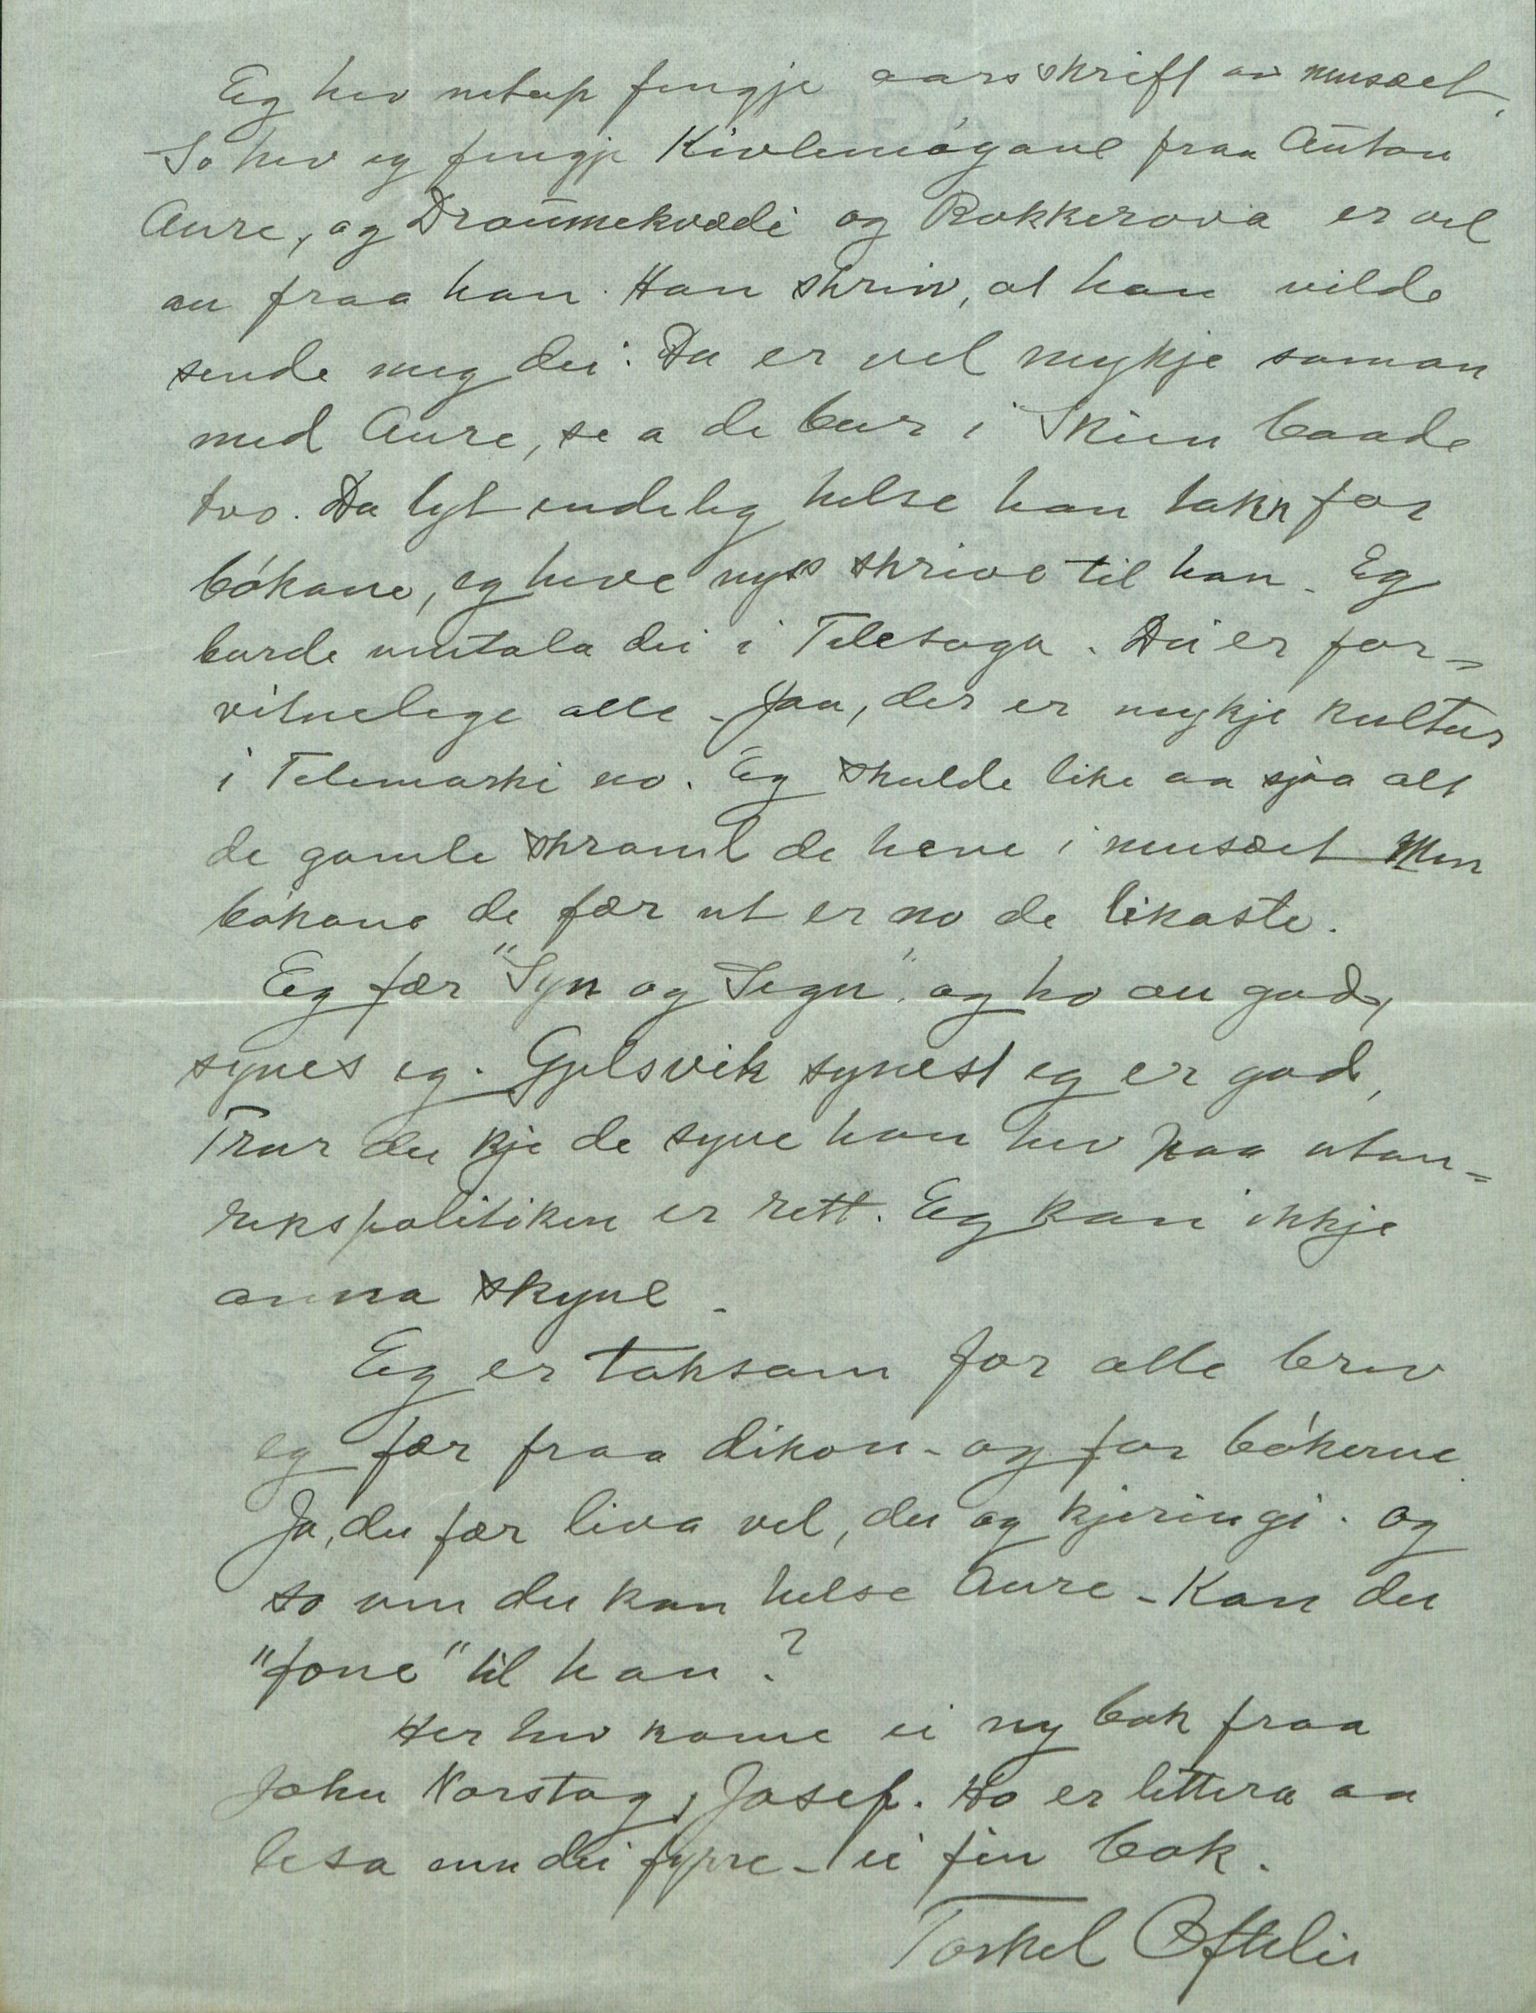 Eg hev netup fengje aarsskrift av musæet.
So hev eg fengje Kivlemøgane fraa Anton
Aure, og Draumekvædi og Rokkerova er vel
au fraa han. Han skriv, at han vilde
sende meg dei. Du er vel mykje saman
med Aure, se a de bur i Skien baade
tvo. Du lyt endeleg helse han takk for
bókane, eg heve nyss skrive til han. Eg
burde umtala dei i Telesoga. Dei er for-
vitnelege alle - Jaa, der er mykje kultur
i Telemarki no. Eg skulde like aa sjaa alt
de gamle skraml de heve i musæet Men
bókane de fær ut er no de likaste.
Eg fær "Syn og Segn", og ho au god,
synes eg. Gjelsvik synest eg er god,
Trur du kje de syne han hev paa utan-
rikspolitiken er rett. Eg kan ikkje
anna skyne -
Eg er taksam for alle brev
eg fær fraa dikon - og for bókerne
Ja, du fær liva vel, du og kjeringi. og
so um du kan helse Aure - Kan du
"fone" til han?
Her hev kome ei ny bok fraa
John Norstog, Josef. Ho er lettera aa
lesa enn dei fyrre - ei fin bok.
Torkel Oftelie